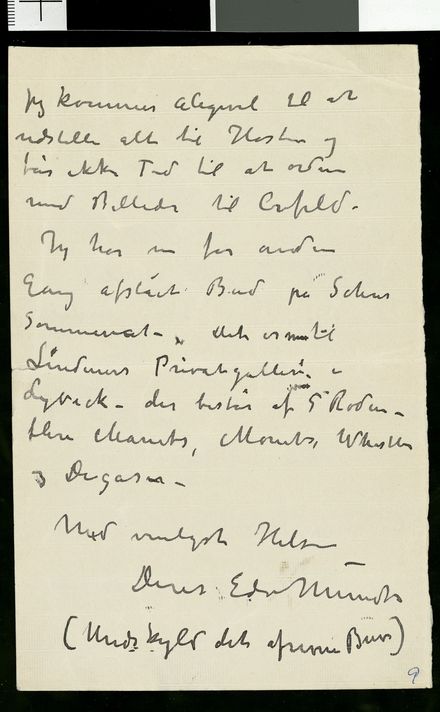 Jeg kommer aligevel til at
udstille alt til Høsten og
får ikke Tid til at ordne
med Billeder til Crefeld.
Jeg har nu for anden
Gang afslået Bud på
Sommernat – det er til
Lindes Privatgalleri i
Lybæck – der består af 5 Rodin –
flere Manets, Monets, Whistler
og Degas –
Med venligst Hilsen
Deres Edv Munch
(Undskyld det afrevne Brev)
9